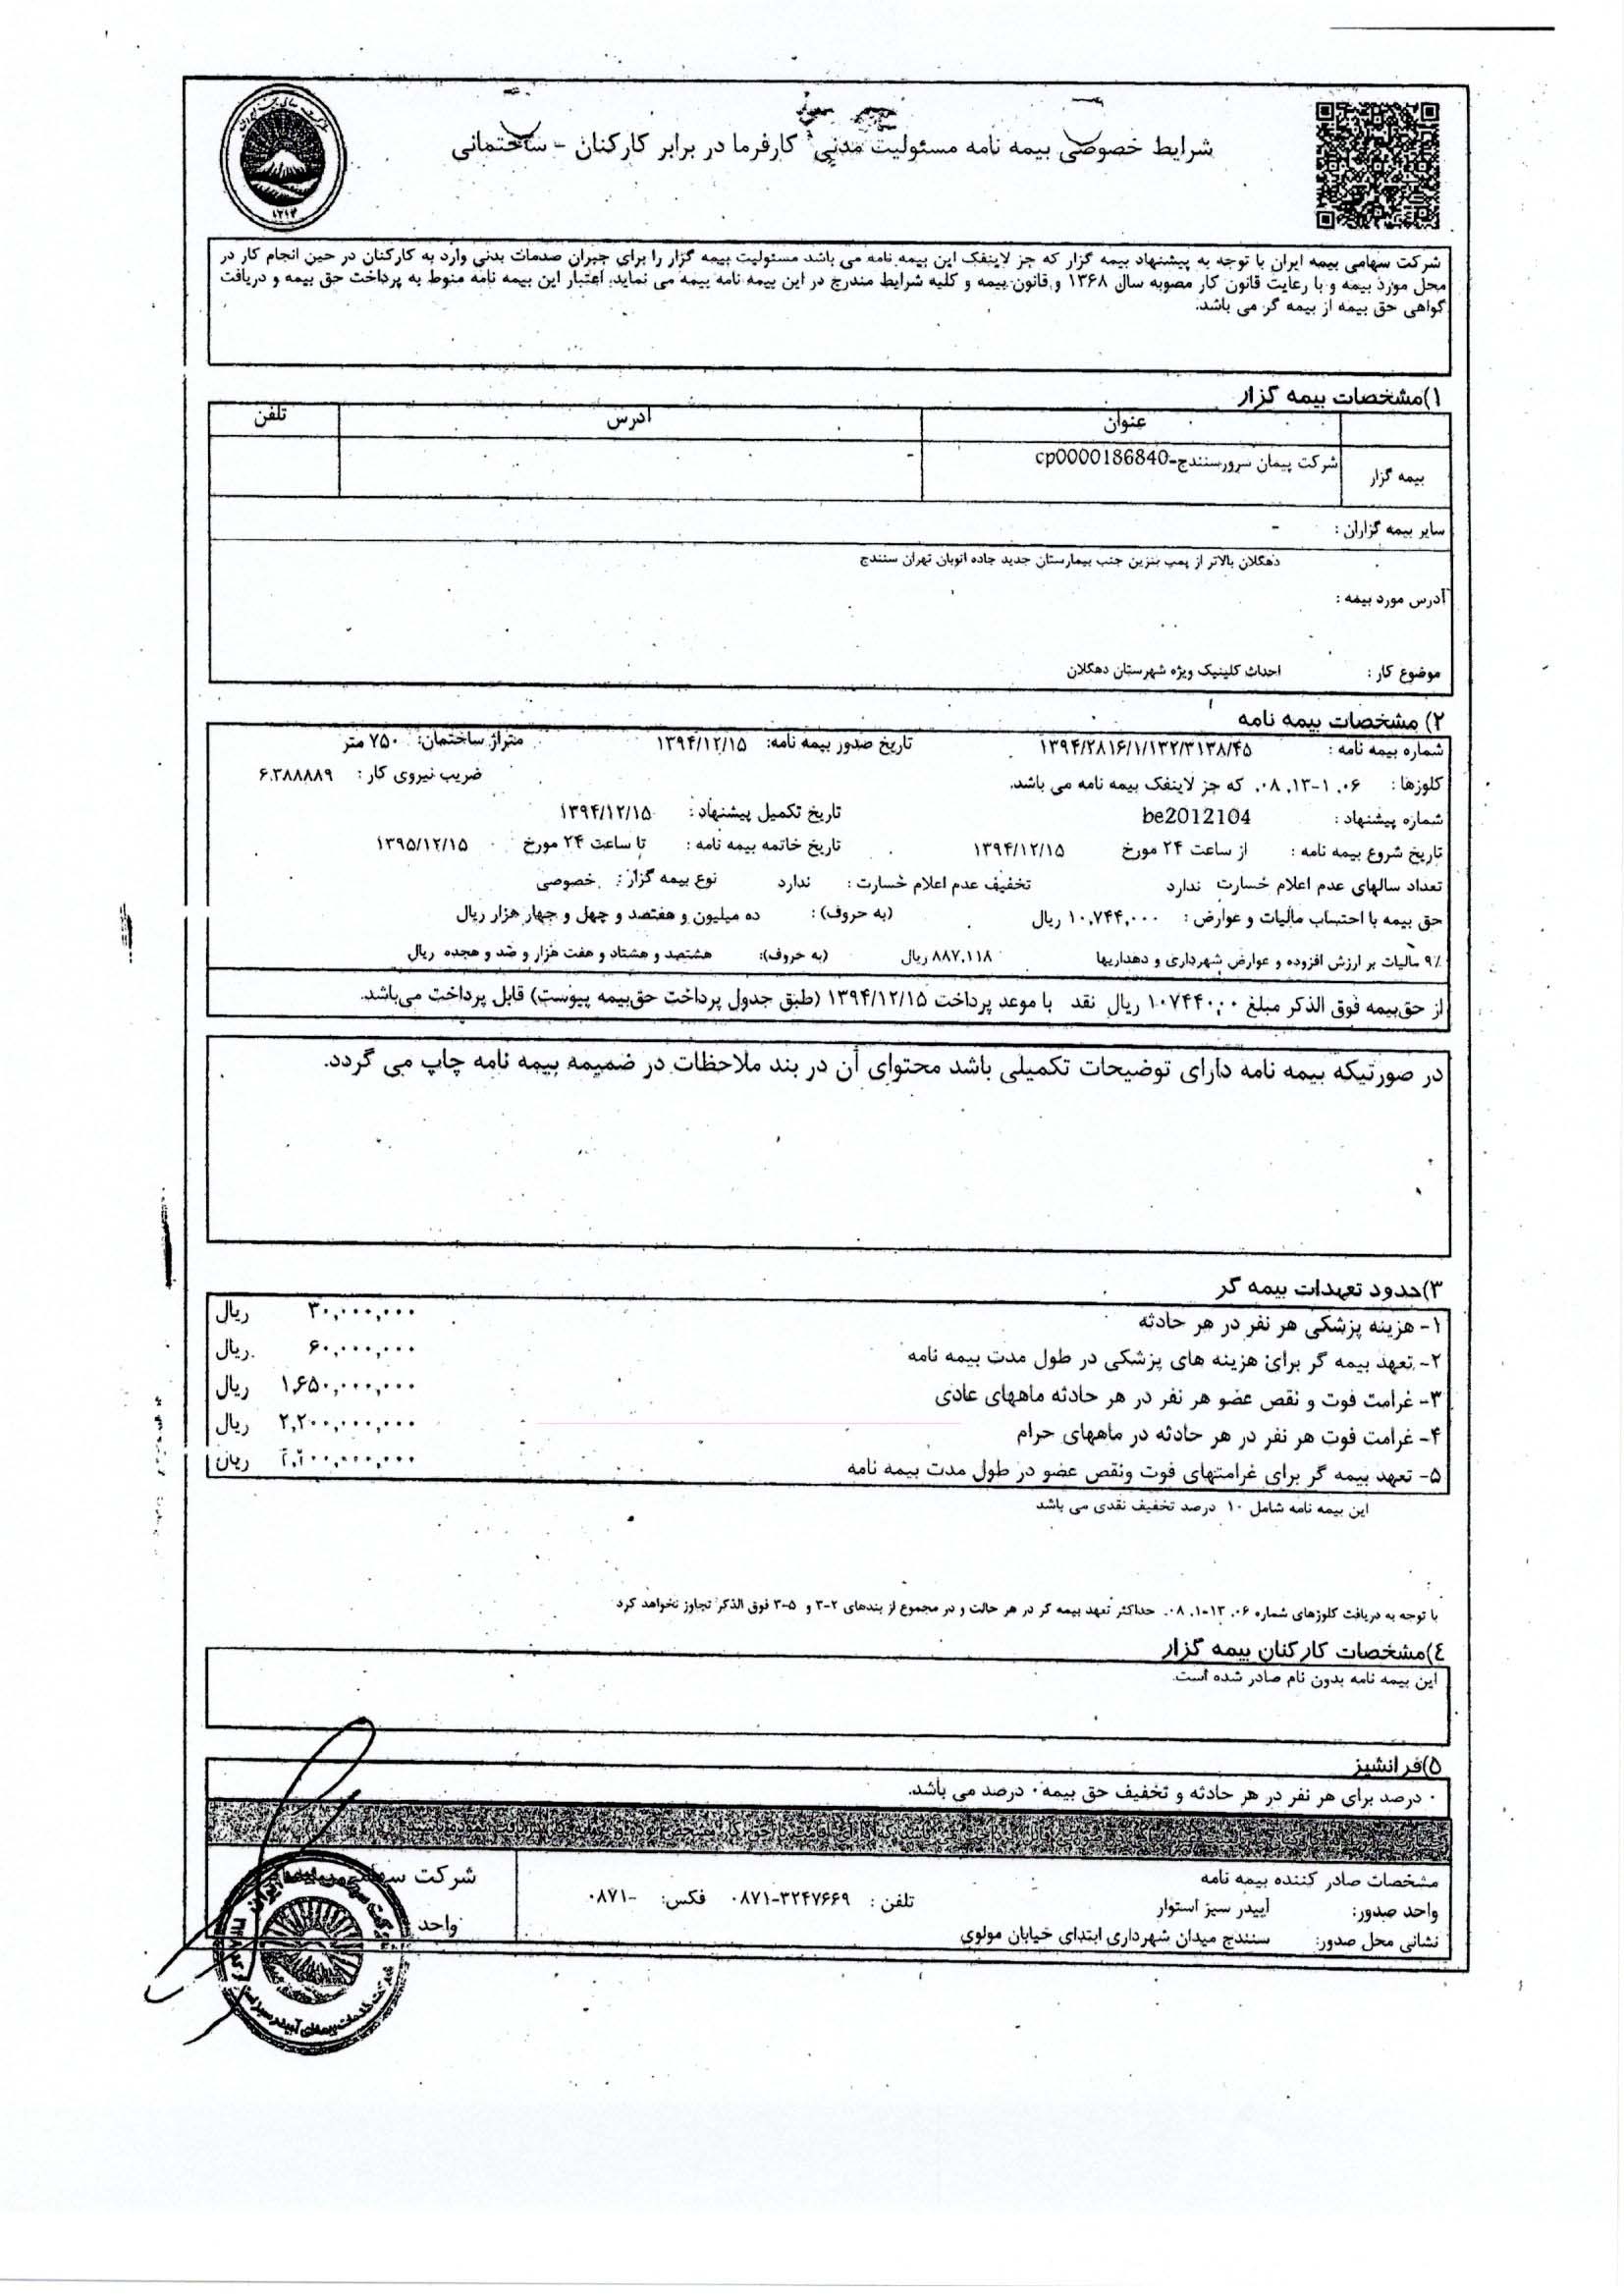 شرایط خصوصی بیمه نامه مسئولیت مدنی کارفرما در برابر کارکنان - ساختمانی
۱۳۱۴
شرکت سهامی بیمه ایران با توجه به پیشنهاد بیمه گزار که جز لاینفک این بیمه نامه می باشد مسئولیت بیمه گزار را برای جبران صدمات بدنی وارد به کارکنان در حین انجام کار در
محل مورد بیمه و با رعایت قانون کار مصوبه سال ۱۳۶۸ و قانون بیمه و کلیه شرایط مندرج در این بیمه نامه بیمه می نماید. اعتبار این بیمه نامه منوط به پرداخت حق بیمه و دریافت
گواهی حق بیمه از بیمه گر می باشد.
۱)مشخصات بیمه گزار
عنوان آدرس تلفن
بیمه گزار شرکت پیمان سرورسنندج-cp0000186840 -
سایر بیمه گزاران : -
دهگلان بالاتر از پمپ بنزین جنب بیمارستان جدید جاده اتوبان تهران سنندج
آدرس مورد بیمه :
موضوع کار : احداث کلینیک ویژه شهرستان دهگلان
۲) مشخصات بیمه نامه
شماره بیمه نامه : ۱۳۹۴/۲۸۱۶/۱/۱۳۲/۳۱۳۸/۴۵ تاریخ صدور بیمه نامه: ۱۳۹۴/۱۲/۱۵ متراژ ساختمان: ۷۵۰ متر
کلوزها : ۰۶، ۱-۱۳، ۰۸، که جز لاینفک بیمه نامه می باشد. ضریب نیروی کار : ۶.۳۸۸۸۸۹
شماره پیشنهاد : be2012104 تاریخ تکمیل پیشنهاد : ۱۳۹۴/۱۲/۱۵
تاریخ شروع بیمه نامه : از ساعت ۲۴ مورخ ۱۳۹۴/۱۲/۱۵ تاریخ خاتمه بیمه نامه : تا ساعت ۲۴ مورخ ۱۳۹۵/۱۲/۱۵
تعداد سالهای عدم اعلام خسارت ندارد تخفیف عدم اعلام خسارت : ندارد نوع بیمه گزار : خصوصی
حق بیمه با احتساب مالیات و عوارض : ۱۰,۷۴۴,۰۰۰ ریال (به حروف): ده میلیون و هفتصد و چهل و چهار هزار ریال
۹٪ مالیات بر ارزش افزوده و عوارض شهرداری و دهداریها ۸۸۷,۱۱۸ ریال (به حروف): هشتصد و هشتاد و هفت هزار و صد و هجده ریال
از حق‌بیمه فوق الذکر مبلغ ۱۰۷۴۴۰۰۰ ریال نقد با موعد پرداخت ۱۳۹۴/۱۲/۱۵ (طبق جدول پرداخت حق‌بیمه پیوست) قابل پرداخت می‌باشد.
در صورتیکه بیمه نامه دارای توضیحات تکمیلی باشد محتوای آن در بند ملاحظات در ضمیمه بیمه نامه چاپ می گردد.
۳)حدود تعهدات بیمه گر
۱- هزینه پزشکی هر نفر در هر حادثه ۳۰,۰۰۰,۰۰۰ ریال
۲- تعهد بیمه گر برای هزینه های پزشکی در طول مدت بیمه نامه ۶۰,۰۰۰,۰۰۰ ریال
۳- غرامت فوت و نقص عضو هر نفر در هر حادثه ماههای عادی ۱,۶۵۰,۰۰۰,۰۰۰ ریال
۴- غرامت فوت هر نفر در هر حادثه در ماههای حرام ۲,۲۰۰,۰۰۰,۰۰۰ ریال
۵- تعهد بیمه گر برای غرامتهای فوت ونقص عضو در طول مدت بیمه نامه ریال
این بیمه نامه شامل ۱۰ درصد تخفیف نقدی می باشد
با توجه به دریافت کلوزهای شماره ۰۶، ۱-۱۳، ۰۸، حداکثر تعهد بیمه گر در هر حالت و در مجموع از بندهای ۲-۳ و ۵-۳ فوق الذکر تجاوز نخواهد کرد
٤)مشخصات کارکنان بیمه گزار
این بیمه نامه بدون نام صادر شده است.
۵)فرانشیز
۰ درصد برای هر نفر در هر حادثه و تخفیف حق بیمه ۰ درصد می باشد.
مشخصات صادر کننده بیمه نامه
واحد صدور: آبیدر سبز استوار تلفن : ۰۸۷۱-۳۲۴۷۶۶۹ فکس: -۰۸۷۱
نشانی محل صدور: سنندج میدان شهرداری ابتدای خیابان مولوی
شرکت سهامی بیمه ایران
واحد